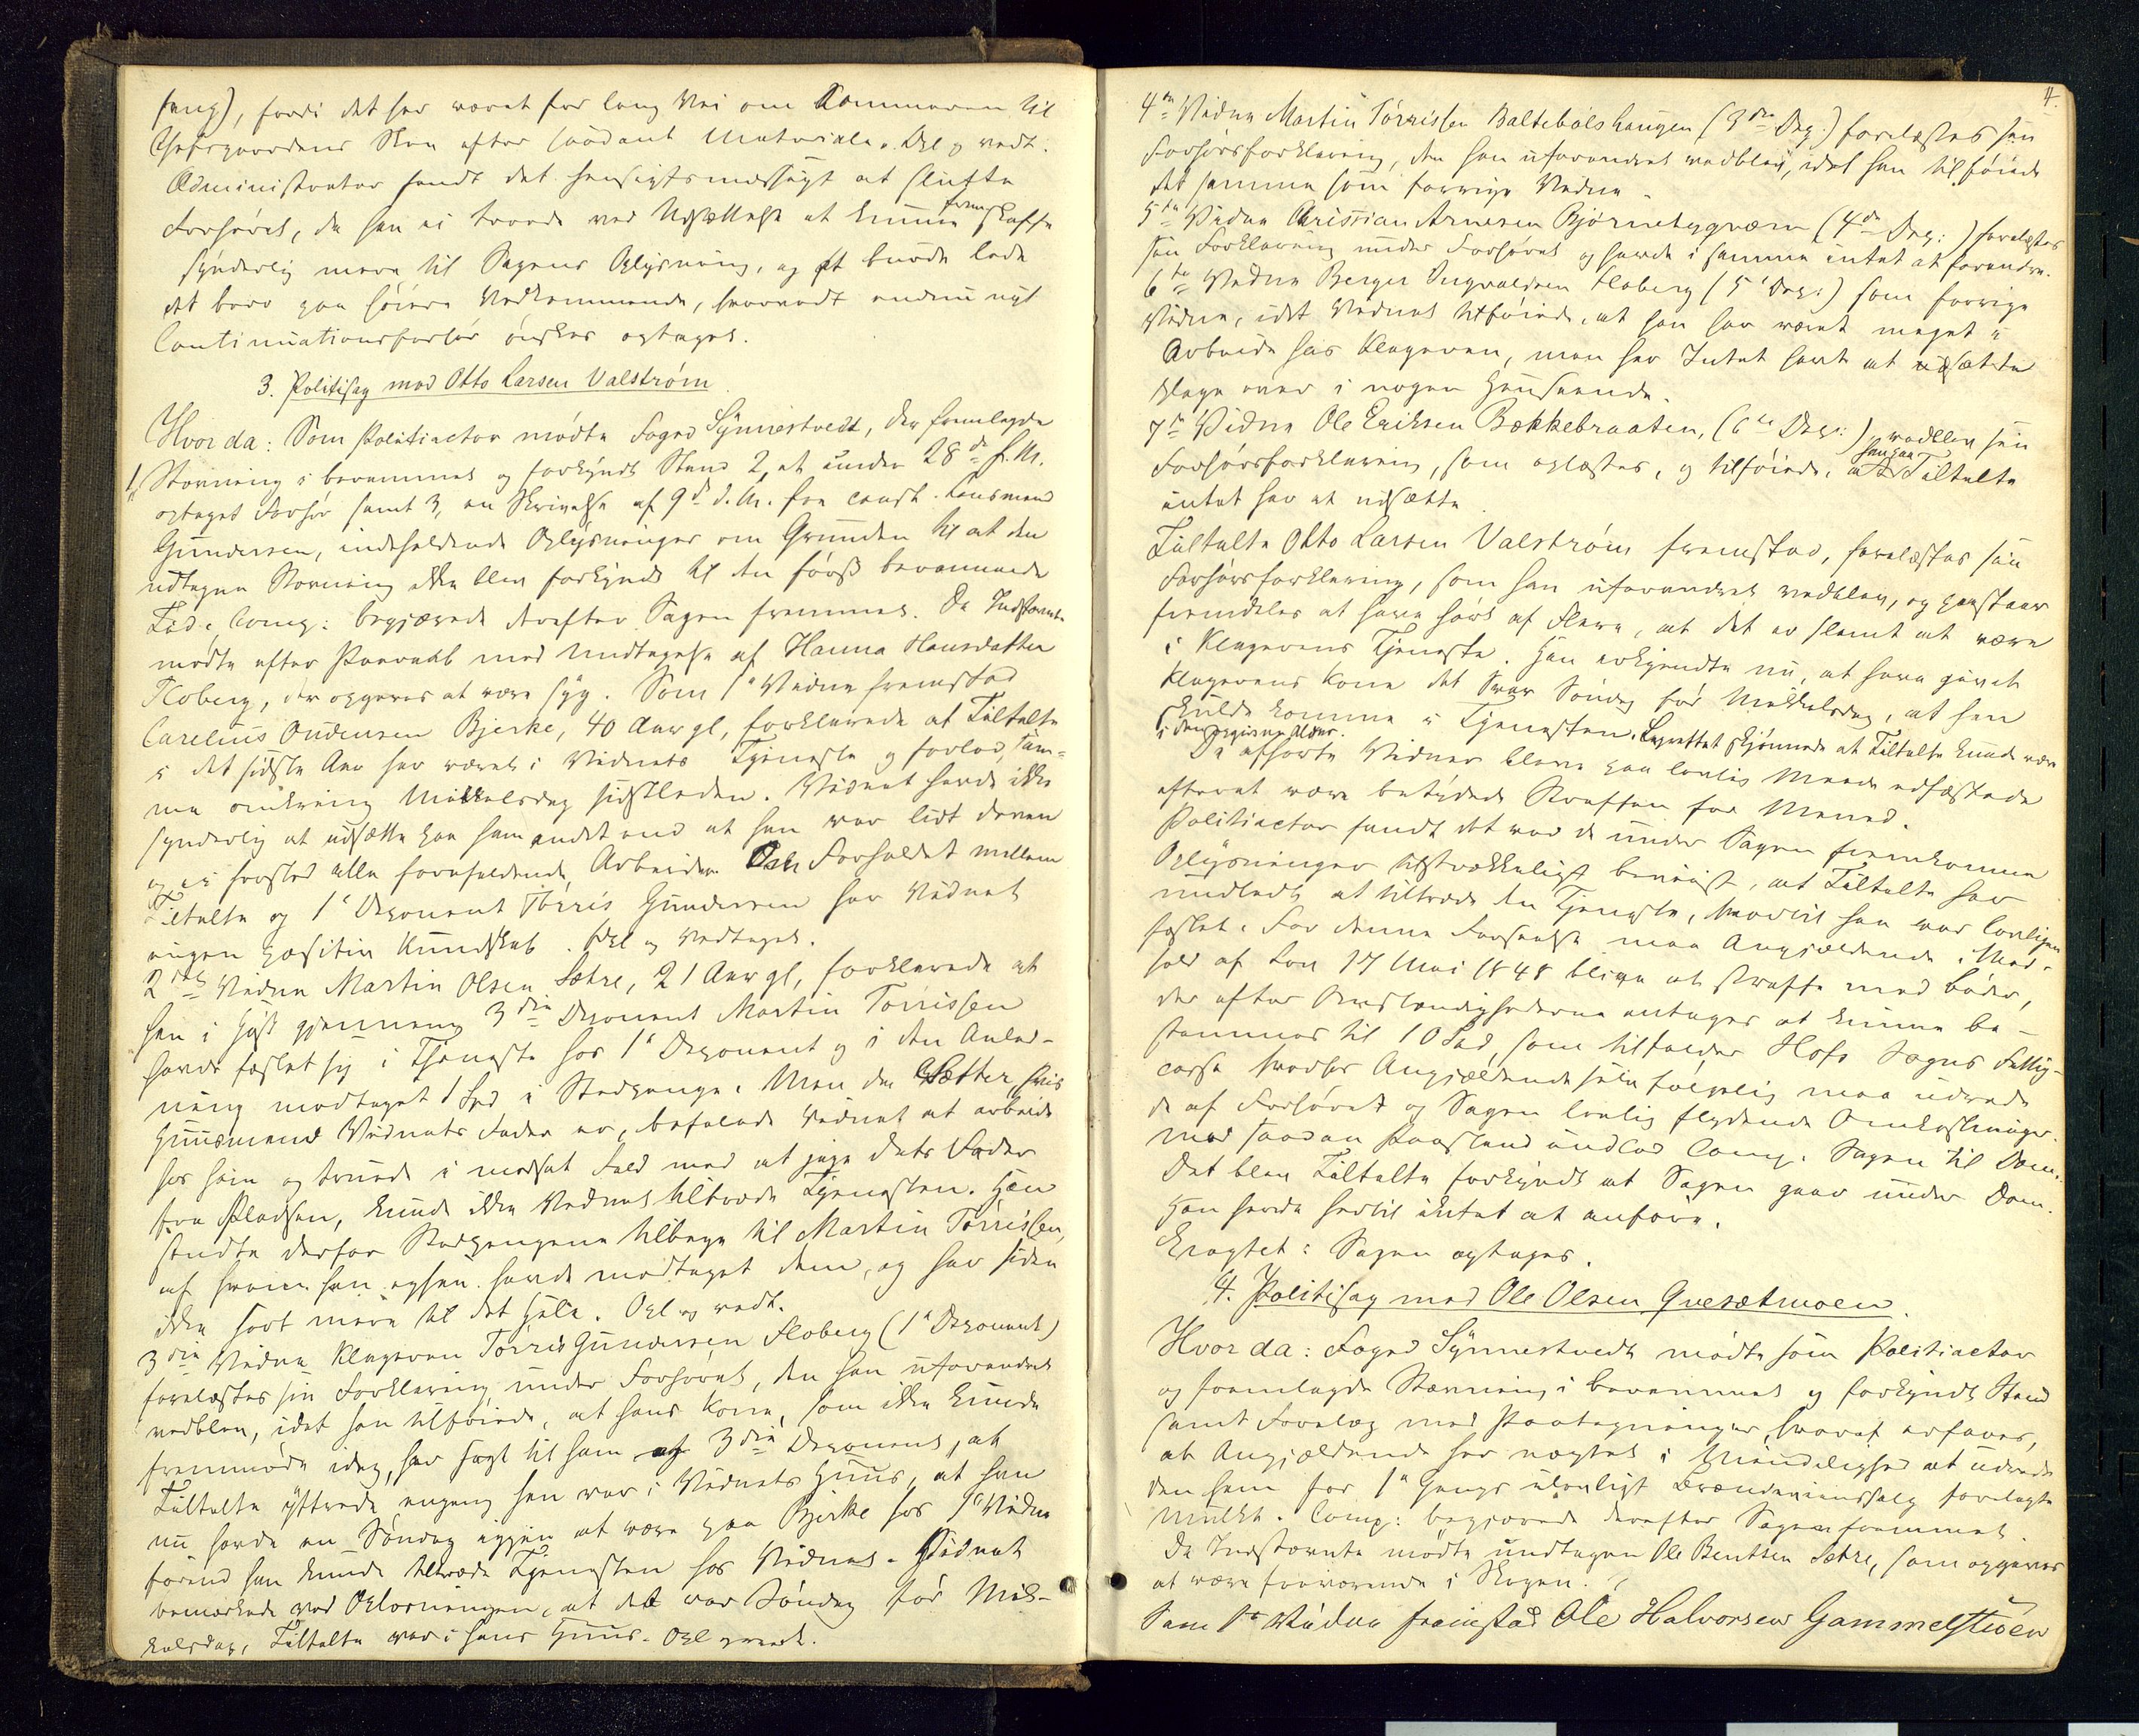 fang), fordi det har været for lang Vei om Kommeren til
Chefsgaardens Skov efter saadant Materiale. Opl. og vedt.
Administrator fandt det hensigtsmæssigt at slutte
Forhøret, da han ei troede ved Udsættelse at kunne fremskaffe
synderlig mere til Sagens Oplysning, og at burde lade
det bero paa høiere Vedkommende, hvorvidt endnu nyt
Continuationsforhør ønskes optaget.
3. Politisag mod Otto Larsen Valstrøm.
Hvor da: Som Politiactor mødte Foged Synnestvedt, der fremlagde
1, Stævning i berammet og forkyndt Stand 2, et under 28de f. M.
optaget Forhør samt 3, en Skrivelse af 9de d. M. fra const. Lensmand
Gundersen, indeholdende Oplysninger om Grunden til at den
udtagne Stævning ikke blev forkyndt til den først berammede
Tid. Comp: begjærede derefter Sagen fremmet. De Indstævnte
mødte efter Paaraab med Undtagelse af Hanna Hansdatter
Floberg, der opgives at være syg. Som 1ste Vidne fremstod
Carelius Oudensen Bjerke, 40 Aar gl, forklarede at Tiltalte
i det sidste Aar har været i Vidnets Tjeneste og forlod sam-
me omkring Mikkelsdag sidstleden. Vidnet havde ikke
synderlig at udsætte paa ham andet end at han var lidt doven
og ei forstod alle forefaldende Arbeider. Om Forholdet mellem
Tiltalte og 1ste Deponent Tørris Gundersen har Vidnet
ingen positiv Kundskab. Opl. og Vedtaget.
2det Vidne Martin Olsen Sætre, 21 Aar gl, forklarede at
han i Høst gjennem 3die Deponent Martin Tørrissen
havde fæstet sig i Tjeneste hos 1ste Deponent og i den Anled-
ning modtaget 1 Spd i Stedpenge. Men da Sætter hvis
Huusmand Vidnets Fader er, befalede Vidnet at arbeide
hos ham og truede i modsat Fald med at jage dets Fader
fra Pladsen, kunde ikke Vidnet tiltræde Tjenesten. Han
sendte derfor Stedpengene tilbage til Martin Tørrissen,
af hvem han ogsaa havde modtaget dem, og har siden
ikke hørt mere til det Hele. Opl. og vedt.
3die Vidne Klageren Tørris Gundersen Floberg (1ste Deponent)
forelæstes sin Forklaring under Forhøret, den han uforandret
vedblev, idet han tilføiede, at hans Kone, som ikke kunde
fremmøde idag, har sagt til ham og 3die Deponent, at
Tiltalte yttrede engang han var i Vidnets Huus, at han
nu havde en Søndag igjen at være paa Bjerke hos 1ste Vidne
førend han kunde tiltræde Tjenesten hos Vidnet. Vidnet
bemærkede ved Oplæsningen, at det var Søndag før Mik-
kelsdag, Tiltalte var i hans Huus. Opl. og vedt.
4.
4de Vidne Martin Tørrissen Baltebølshaugen (3die Dep:) forelæstes sin
Forhørsforklaring, den han uforandret vedblev, idet han tilføiede
det samme som forrige Vidne.
5te Vidne Christian Arnesen Bjørnebyqværn (4de Dep:) forelæstes
sin Forklaring under Forhøret og havde i samme intet at forandre.
6te Vidne Berger Ingvaldsen Floberg (5te Dep:) som forrige
Vidne, idet Vidnet tilføiede, at han har været meget i
Arbeide hos Klageren, men har Intet havt at udsætte
klage over i nogen Henseende.
7de Vidne Ole Eriksen Bækkebraaten, (6te Dep:), vedblev sin
Forhørsforklaring, som oplæstes, og tilføiede, at han paa Tiltalte
intet har at udsætte.
Tiltalte Otto Larsen Valstrøm fremstod, forelæstes sin
Forhørsforklaring, som han uforandret vedblev, og paastaar
fremdeles at have hørt af Flere, at det er slemt at være
i Klagerens Tjeneste. Han erkjendte nu, at have givet
Klagerens Kone det Svar Søndag før Mikkelsdag, at han
skulde komme i Tjenesten. Laugrettet skjønnede at Tiltalte kunde være
i den opgivne Alder.
De afhørte Vidner bleve paa lovlig Maade edfæstede
efterat være betydede Straffen for Mened.
Politiactor fandt det ved de under Sagen fremkomne
Oplysninger tilstrækkeligt beviist, at Tiltalte har
undladt at tiltræde den Tjeneste, hvortil han var lovligen
fæstet. For denne Forseelse maa Angjældende i Med-
hold af Lov 17 Mai 1848 blive at straffe med Bøder,
der efter Omstændighederne antages at kunne be-
stemmes til 10 Spd, som tilfalder Hofs Sogns Fattig-
casse hvorhos Angjældende selvfølgelig maa udrede
de af Forhøret og Sagen lovlig flydende Omkostninger.
Med saadan Paastand indlod Comp. Sagen til Dom.
Det blev Tiltalte forkyndt at Sagen gaar under Dom.
Han havde hertil intet at anføre.
Eragtet: Sagen optages.
4. Politisag mod Ole Olsen Qvesætmoen.
Hvor da: Foged Synnestvedt mødte som Politiactor
og fremlagde Stævning i berammet og forkyndt Stand
samt Forelæg med Paategninger, hvoraf erfares,
at Angjældende har nægtet i Mindelighed at udrede
den ham for 1ste Gangs ulovligt Brændeviinssalg forelagte
Mulkt. Comp: begjærede derefter Sagen fremmet.
De Indstævnte mødte undtagen Ole Bentsen Sætre, som opgives
at være fraværende i Skogen.
Som 1ste Vidne fremstod Ole Halvorsen Gammelstuen